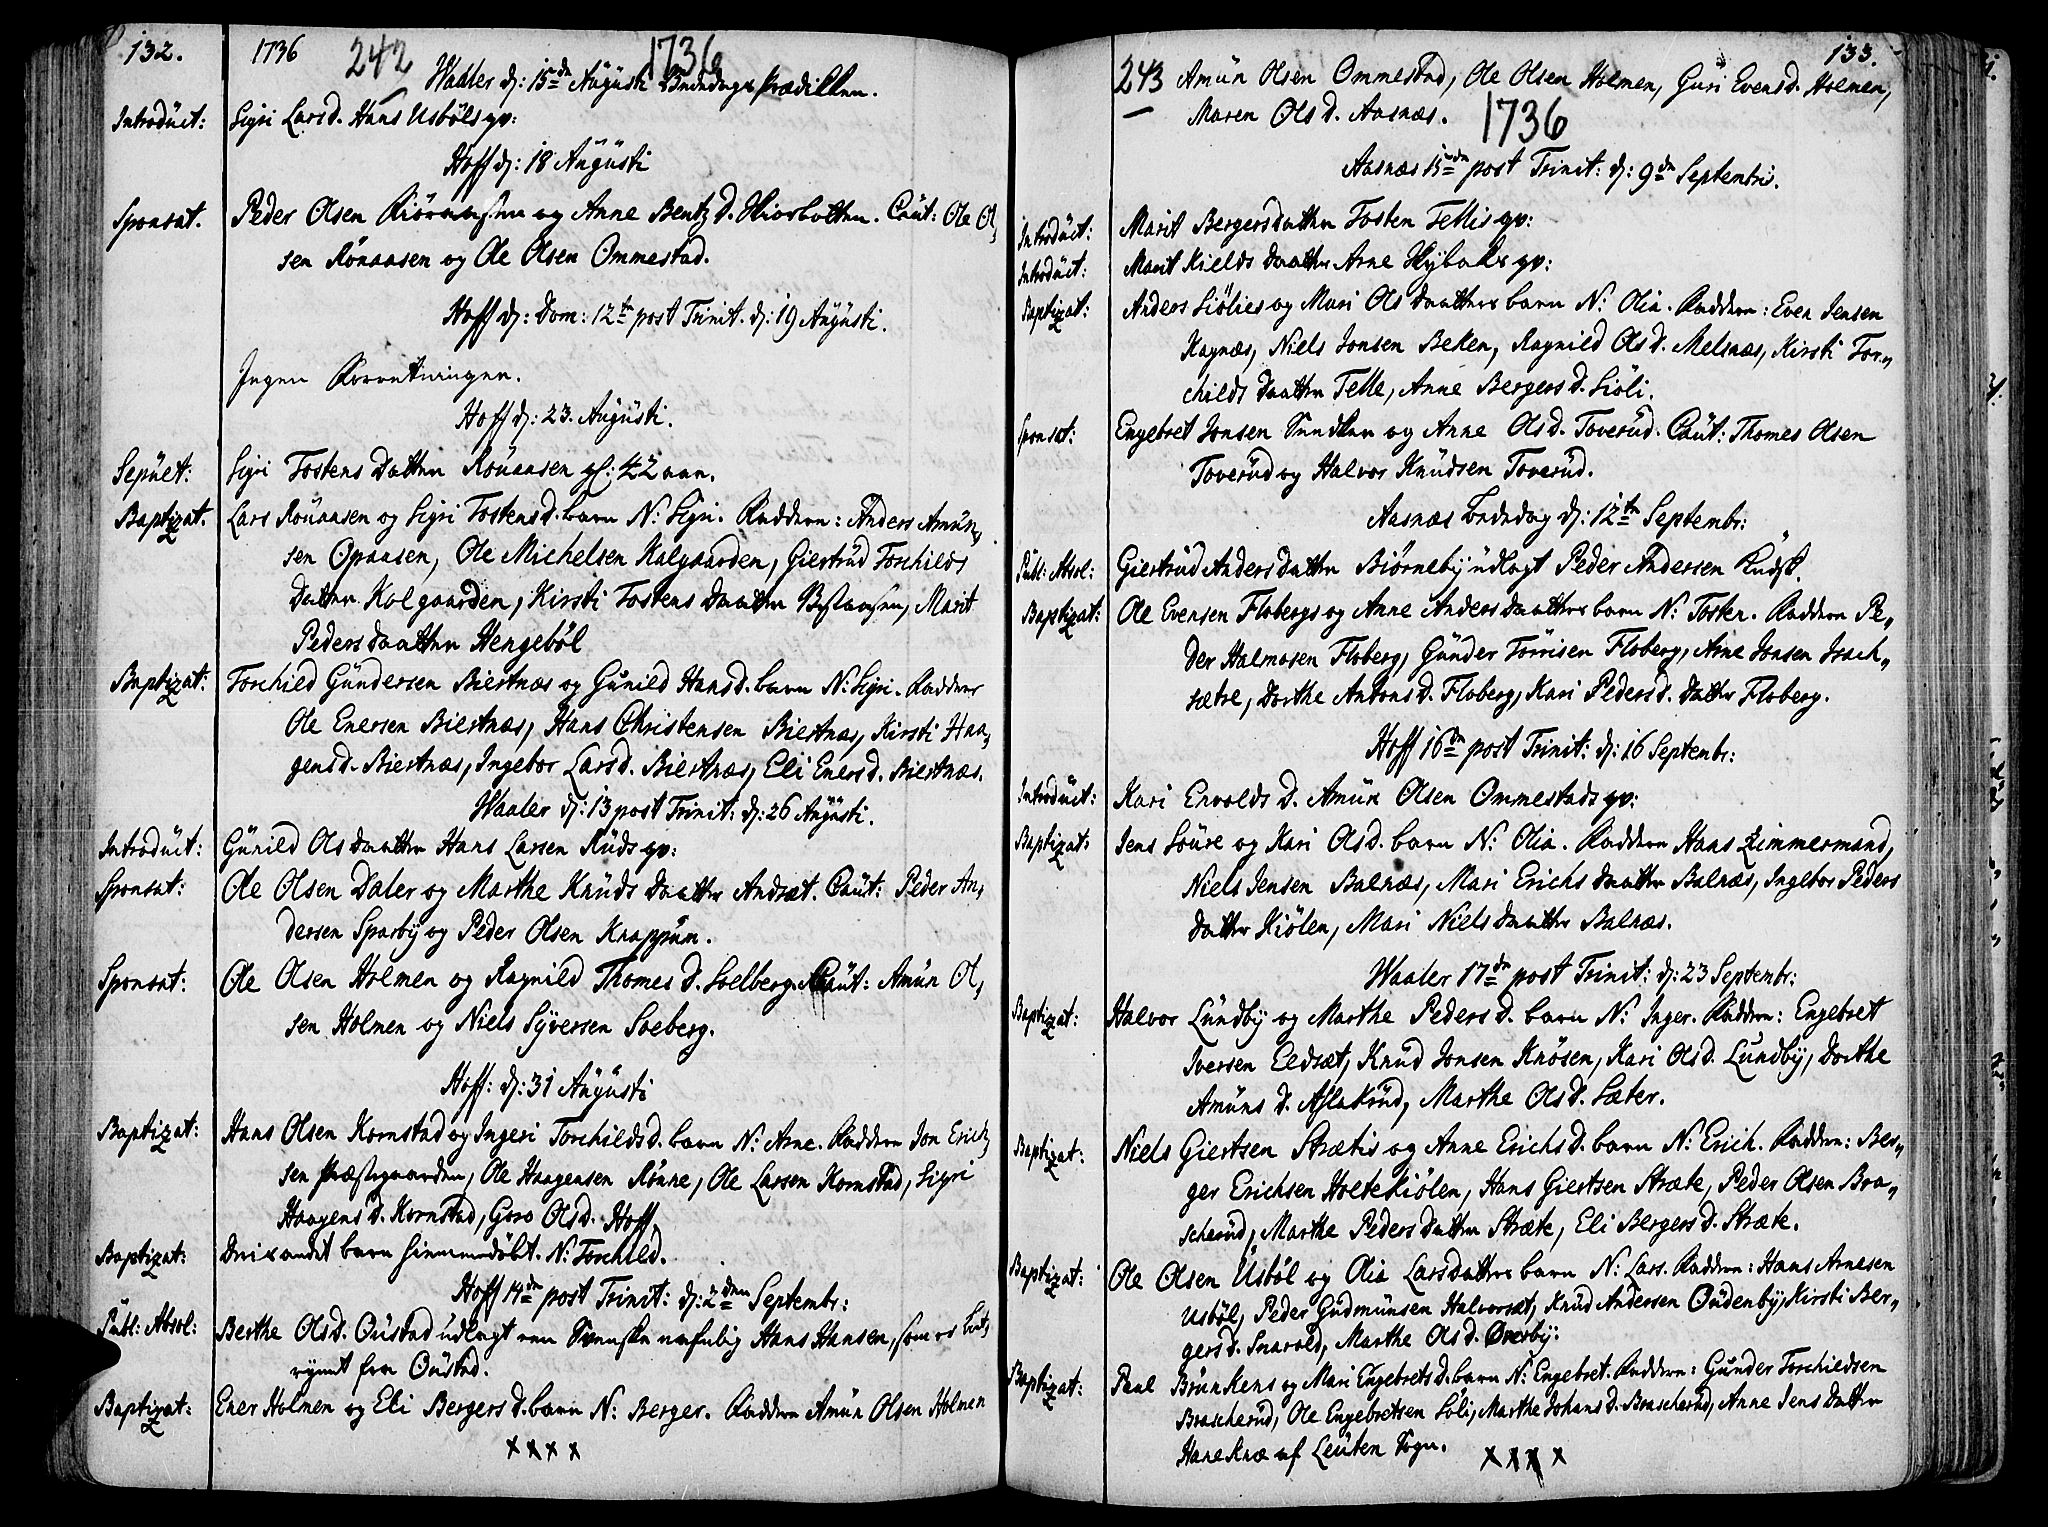 132. 1736 242 1736
Waaler d: 15de Augusti Bededags Prædiken.
Introduct: Sigri Larsd. Hans Usböls qv:
Hoff d: 18 Augusti
Sponsat. Peder Olsen og Anne Bentzd. Caut: Ole Ol,
sen Rönaasen og Ole Olsen Ommestad.
Hoff d: Dom: 12te post Trinit. d: 19 Augusti.
Ingen Forretninger.
Hoff d: 23. Augusti.
Sepult: Sigri Tostens Datter Rönaasen gl: 42 aar.
Baptizat. Lars Rönaasen og Sigri Tostensd. barn N: Sigri. Faddere: Anders Amun,
sen Opaasen, Ole Michelsen Kalgaarden, Giertrud Torchilds
Datter Kolgaarden, Kirsti Tostens Daatter, Marit
Peders daatter Hengeböl
Baptizat: Torchild Gundersen Biertnæs og Gunild Hansd. barn N: Sigri. Faddere
Ole Enersen Biertnæs, Hans Christensen Biertnæs, Kirsti Haa,
gensd. Biertnæs, Ingebor Larsd. Biertnæs, Eli Enersd. Biertnæs.
Waaler d: 13 post Trinit: d: 26 Augusti.
Introduct: Gunild Olsdaatter Hans Larsen Ruds qv:
Sponsat: Ole Olsen Daler og Marthe Knuds Daatter Andsæt. Caut: Peder An,
dersen Sparby og Peder Olsen Knappum.
Sponsat: Ole Olsen Holmen og Ragnild Thomesd. Soelberg. Caut: Amun Ol,
sen Holmen og Niels Syversen Soeberg.
Hoff: d: 31 Augusti
Baptizat: Hans Olsen Kornstad og Ingeri Torchildsd. barn N: Arne. Faddere Jon Erich,
sen Præstegaarden, Ole Haagensen Rönne, Ole Larsen Kornstad, Sigri
Haagensd. Kornstad, Goro Olsd. Hoff.
Baptizat: andet barn hiemmedöbt. N: Torchild.
Hoff 14de post Trinit: d: 2den Septembr:
Publ: Absol: Berthe Olsd. Oustad udlagt en Svensk Hans Hansen, som er bort,
rymt fra Oustad.
Baptizat: Ener Holmen og Eli Bergersd. barn N: Berger. Faddere Amun Olsen Holmen
x x x x
133.
243 Amun Olsen Ommestad, Ole Olsen Holmen, Guri Evensd. Holmen,
Maren Olsd. Aasnæs. 1736
Aasnæs 15de post Trinit: d: 9de Septembris.
Introduct: Marit Bergersdaatter Tosten Tellis qv:
Introduct: Marit Kields daatter Arne qv:
Baptizat: Anders Siölies og Mari Olsdaatters barn N: Olia. Faddere: Even Jensen
Kagnæs, Niels Jonsen Beken, Ragnild Olsd. Melsnæs, Kirsti Tor,
childs daatter Telle, Anne Bergersd. Siöli.
Sponsat: Engebret Jonsen og Anne Olsd. Toverud. Caut: Thomes Olsen
Toverud og Halvor Knudsen Toverud.
Aasnæs d: 12te Septembr:
Publ: Absol: Giertrud Andersdatter Biörneby udlagt Peder Andersen
Baptizat: Ole Evensen Flobergs og Anne Andersdaatters barn N: Tosten. Faddere Pe,
der Halmosen Floberg, Gunder Törrisen Floberg, Arne Jonsen Isach,
sætre, Dorthe Antonsd. Floberg, Kari Pedersd. Datter Floberg.
Hoff 16de post Trinit: d: 16 Septembr:
Introduct: Kari Envoldsd. Amun Olsen Ommestads qv:
Baptizat: Jens Soure og Kari Olsd. barn N: Olia. Faddere Hans Zimmermand,
Niels Jensen Balnæs, Mari Erichs daatter Balnæs, Ingebor Peders
datter Kiölen, Mari Nielsdaatter Balnæs.
Waaler 17de post Trinit: d: 23 Septembr:
Baptizat: Halvor Lundby og Marthe Pedersd. barn N: Inger. Faddere: Engebret
Iversen Eedsæt, Knud Jonsen Knösen, Kari Olsd. Lundby, Dorthe
Amuns d. Aslakrud, Marthe Olsd. Sæter.
Baptizat: Niels Giertsen Strætis og Anne Erichsd. barn N: Erich. Faddere: Ber,
ger Erichsen Holtekiölen, Hans Giertsen Stræte, Peder Olsen Bra,
scherud, Marthe Pedersdatter Stræte, Eli Bergersd. Stræte.
Baptizat: Ole Olsen Usböl og Olia Larsdatters barn N: Lars. Faddere: Hans Arnesen
Usböl, Peder Gudmunsen Halvorsæt, Knud Andersen Oudenby, Kirsti Ber,
gersd. Snarold, Marthe Olsd. Överby.
Baptizat: Paul Brunkens og Mari Engebretsd. barn N: Engebret. Faddere: Gunder Torchildsen
Brascherud, Ole Engebretsen Söli, Marthe Johansd. Brascherud, Anne Jensdatter
Haneknæ af Leuten Sogn. x x x x